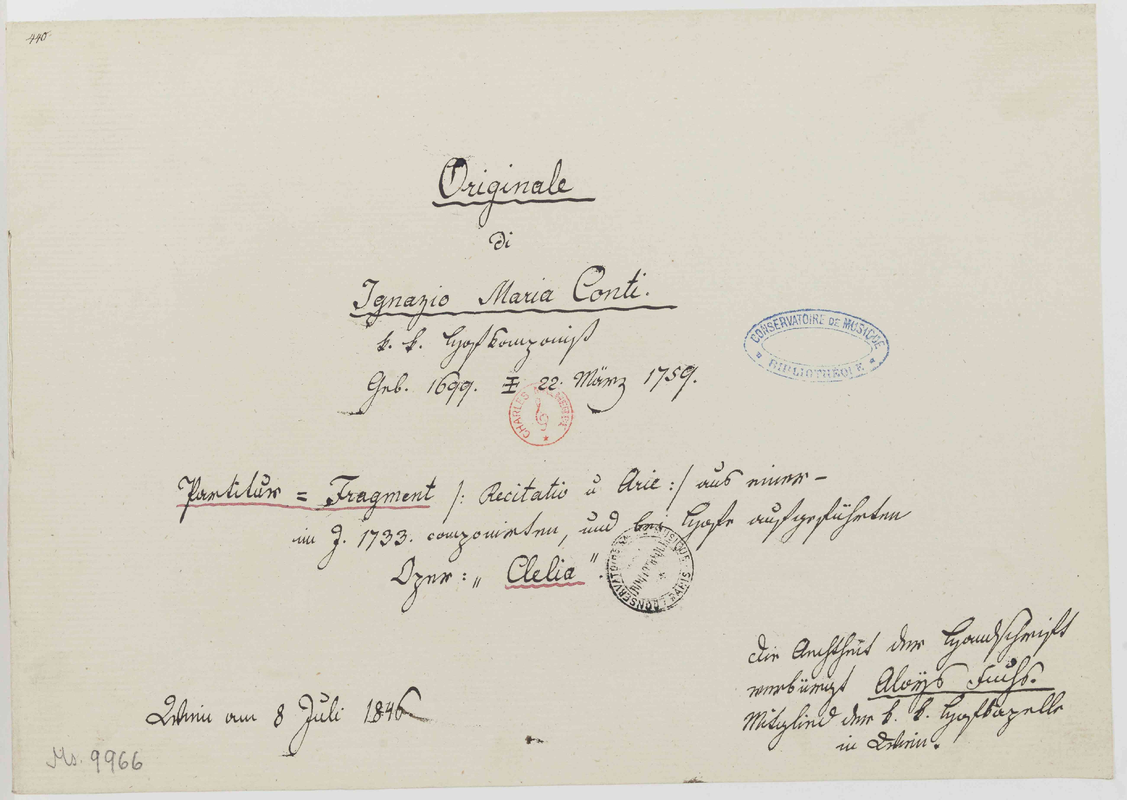 440
Originale
di
Ignazio Maria Conti.
k. k. Hofkomponist
Geb. 1699. 22. März 1759.
CONSERVATOIRE DE MUSIQUE
BIBLIOTHÈQUE
CHARLES MALHERBE
Partitur = Fragment /: Recitativ u Arie :/ aus einer
im J. 1733. componirten, und bei Hofe aufgeführten
Oper: „Clelia".
CONSERVATOIRE MUSIQUE PARIS
Die Aechtheit der Handschrift
verbürgt Aloÿs Fuchs.
Mitglied der k. k. Hofkapelle
in Wien.
Wien am 8 Juli 1846
Ms. 9966